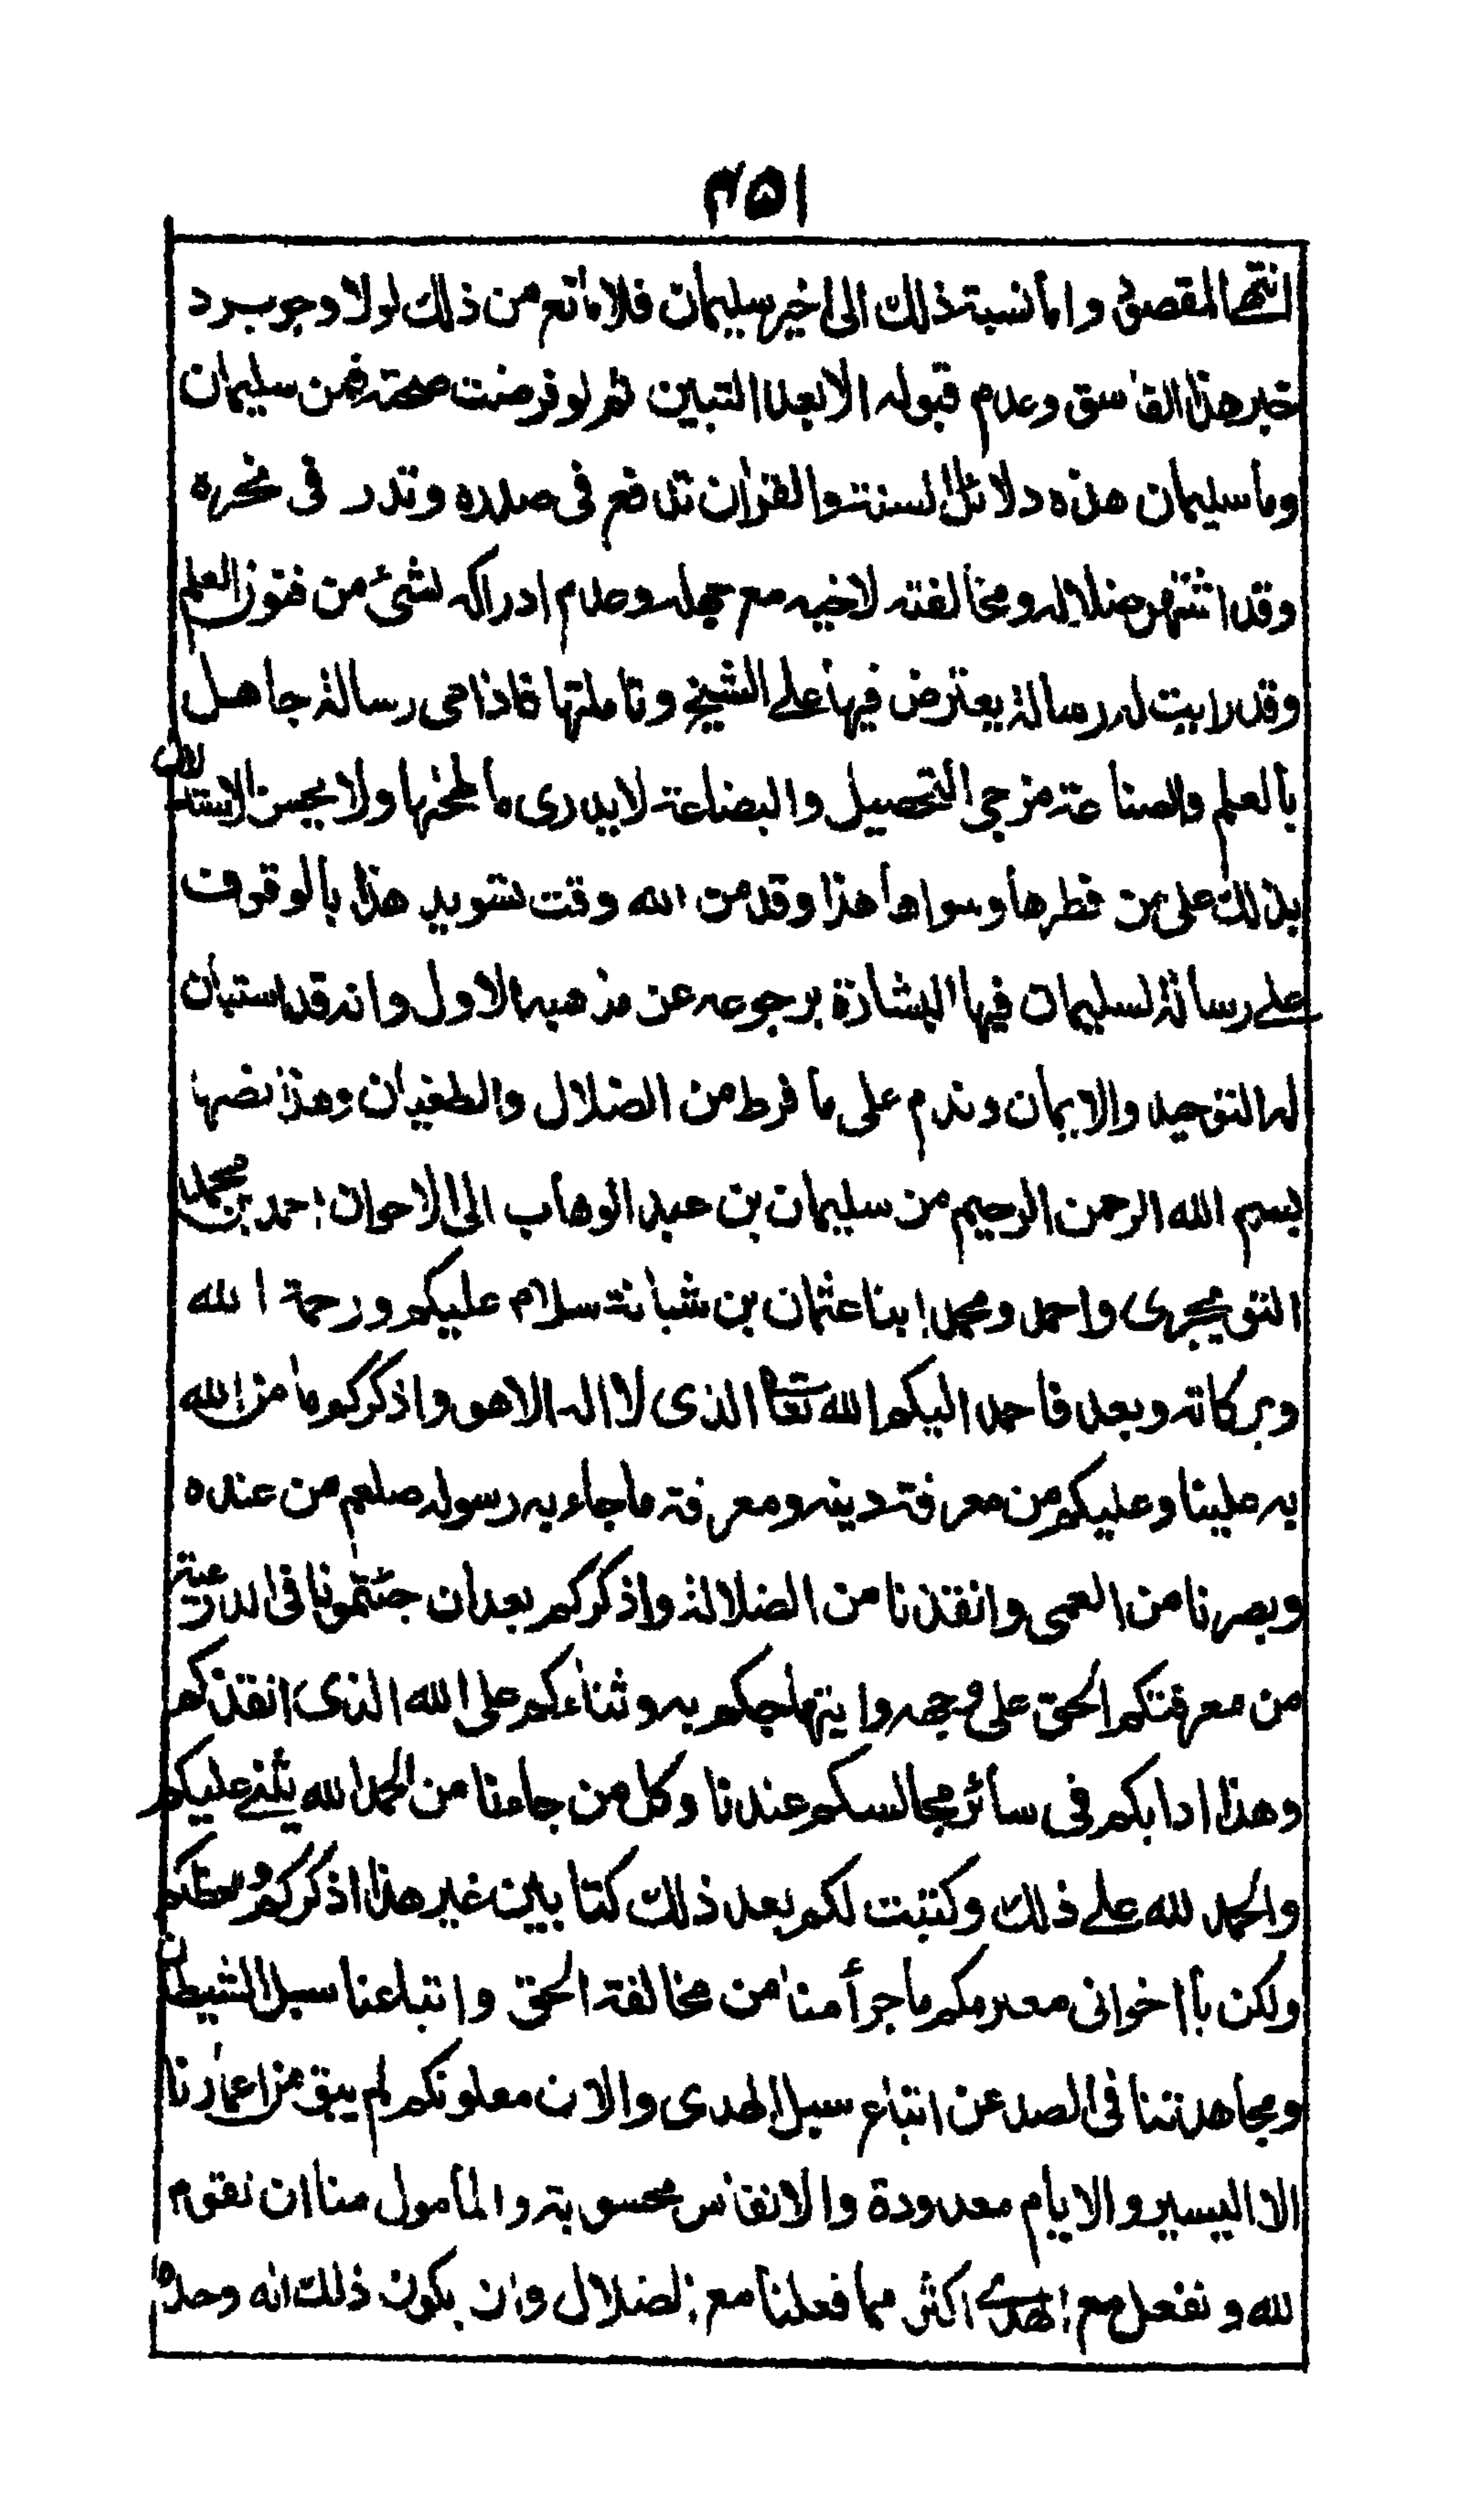 ٤٥١
انتهى المقصود واما نسبة ذلك الى اخيه سليمان فلا مانع من ذلك لولا وجوب رد
خبر هذا الفاسق وعدم قبوله الا بعد التبين ثم لو فرضت صحته فمن سليمان
وما سليمان هذه دلائل السنة والقرآن تدفع فى صدره وتدر فى نحره
وقد اشتهر ضلاله ومخالفته لاخيه مع جهله وعدم ادراكه لشئ من فنون العلم
وقد رايت له رسالة يعترض فيها على الشيخ وتاملتها فاذا هى رسالة جاهل
بالعلم والصناعة مزجى التحصيل والبضاعة لا يدرى ما طحاها ولا يحسن الاستدلال
بذلك على من فطرها وسواها هذا وقد من الله وقت تسويد هذا بالوقوف
على رسالة لسليمان فيها البشارة برجوعه عن مذهبه الاول وانه قد استبان
له التوحيد والايمان وندم على ما فرط من الضلال والطغيان وهذا نصها
بسم الله الرحمن الرحيم من سليمان بن عبد الوهاب الى الاخوان احمد بن محمد
التويجرى واحمد ومحمد ابنا عثمان بن شبانة سلام عليكم ورحمة الله
وبركاته وبعد فاحمد اليكم الله تعا الذى لا اله الا هو واذكركم ما من الله
به علينا وعليكم من معرفة دينه ومعرفة ما جاء به رسوله صلعم من عنده
وبصرنا من العمى وانقذنا من الضلالة واذكركم بعد ان جئتمونا فى الدرعية
من معرفتكم الحق على وجهه وابتهاجكم به وثناءكم على الله الذى انقذكم
وهذا دابكم فى سائر مجالسكم عندنا وكل من جاءنا من الحمد لله يثنى عليكم
والحمد لله على ذلك وكتبت لكم بعد ذلك كتابين غير هذا اذكركم واحظكم
ولكن يا اخوانى معلومكم ما جرأ منا من مخالفة الحق واتباعنا سبل الشيطان
ومجاهدتنا فى الصد عن اتباع سبل الهدى والان معلومكم لم يبق من اعمارنا
الا اليسير والايام معدودة والانفاس محسوبة والمأمول منا ان نقوم
لله ونفعل مع الهدى اكثر مما فعلنا مع الضلال وان يكون ذلك لله وحده